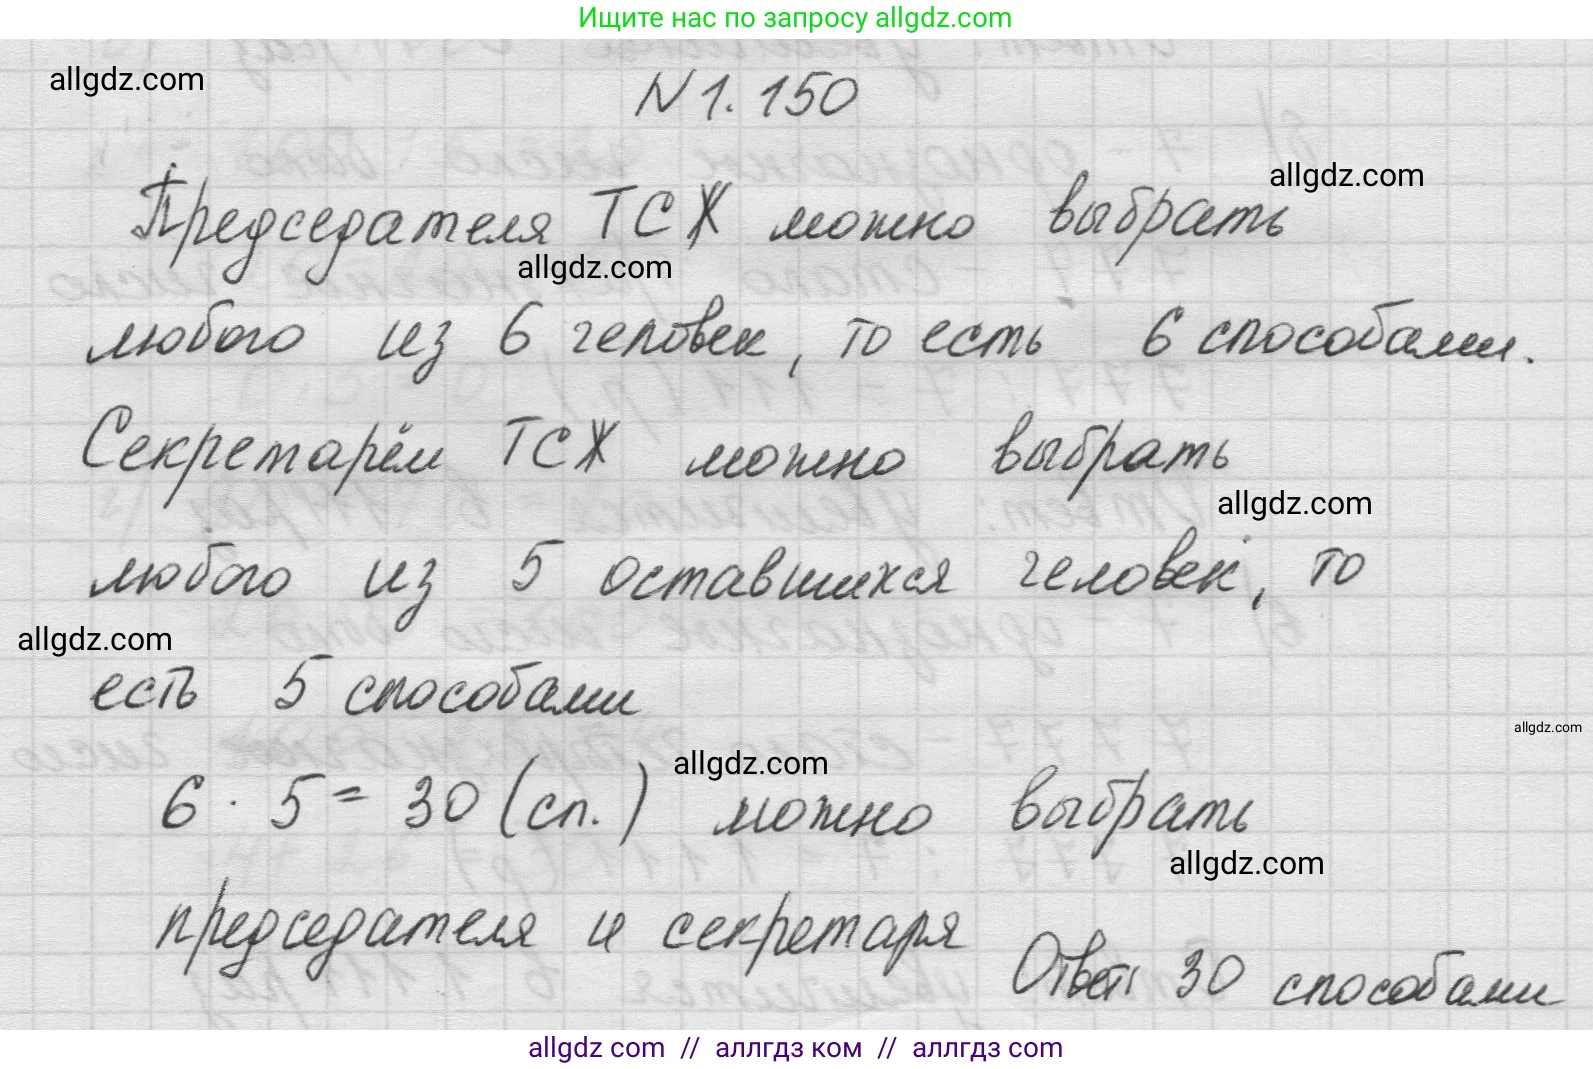 Ищите нас по запросу allgdz.com
allgdz.com
N 1.150
allgdz.com
Председателя ТСЖ можно выбрать
allgdz.com
любого из 6 человек, то есть 6 способами.
Секретарём ТСЖ можно выбрать
allgdz.com
любого из 5 оставшихся человек, то
allgdz.com
есть 5 способами
allgdz.com
allgdz.com
6 · 5 = 30 (сп.) можно выбрать
allgdz.com
председателя и секретаря
Ответ: 30 способами
allgdz com // аллгдз ком // аллгдз com